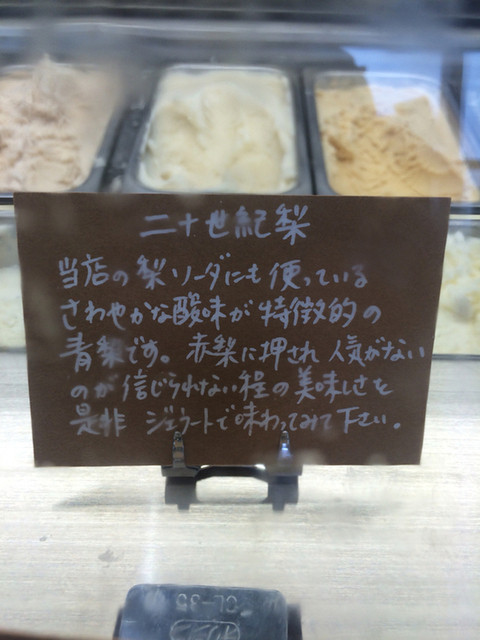 二十世紀梨
当店の梨ソーダにも使っている
さわやかな酸味が特徴的の
青梨です。赤梨に押され人気がない
のが信じられない程の美味しさを
是非 ジェラートで味わってみて下さい。
CL-35